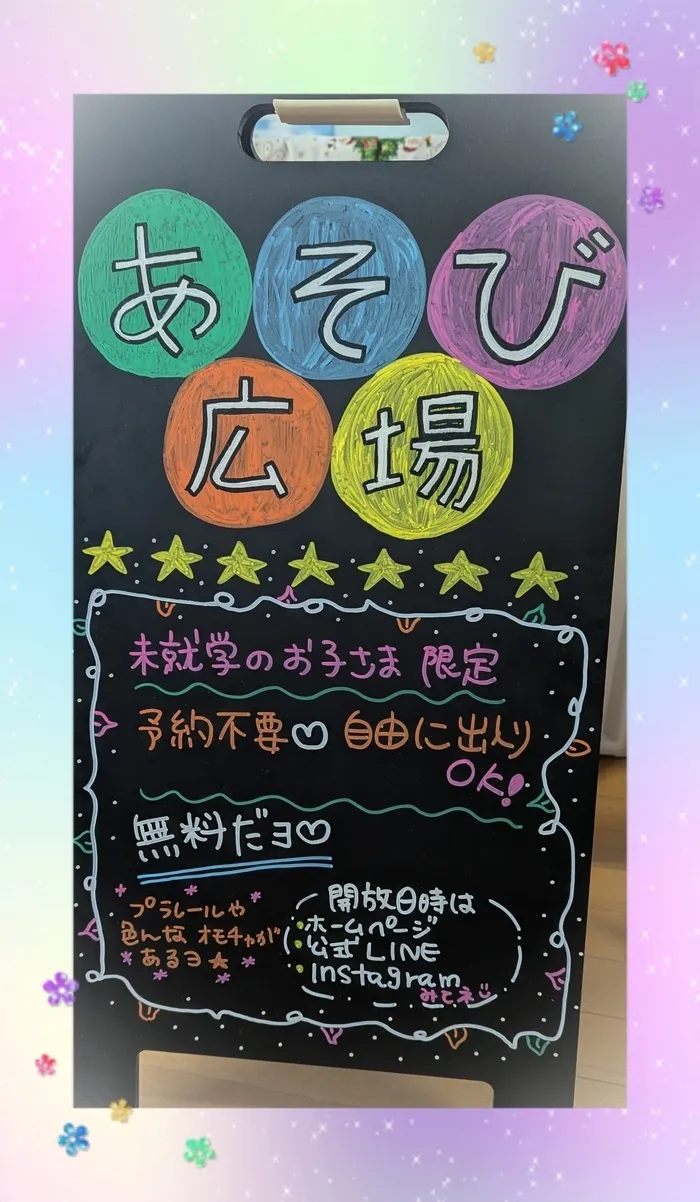 あそび
広場
未就学のお子さま 限定
予約不要♡ 自由に出入り
OK!
無料だヨ♡
プラレールや
色んな オモチャが
あるヨ★
開放日時は
・ホームページ
・公式LINE
・Instagram
みてネ